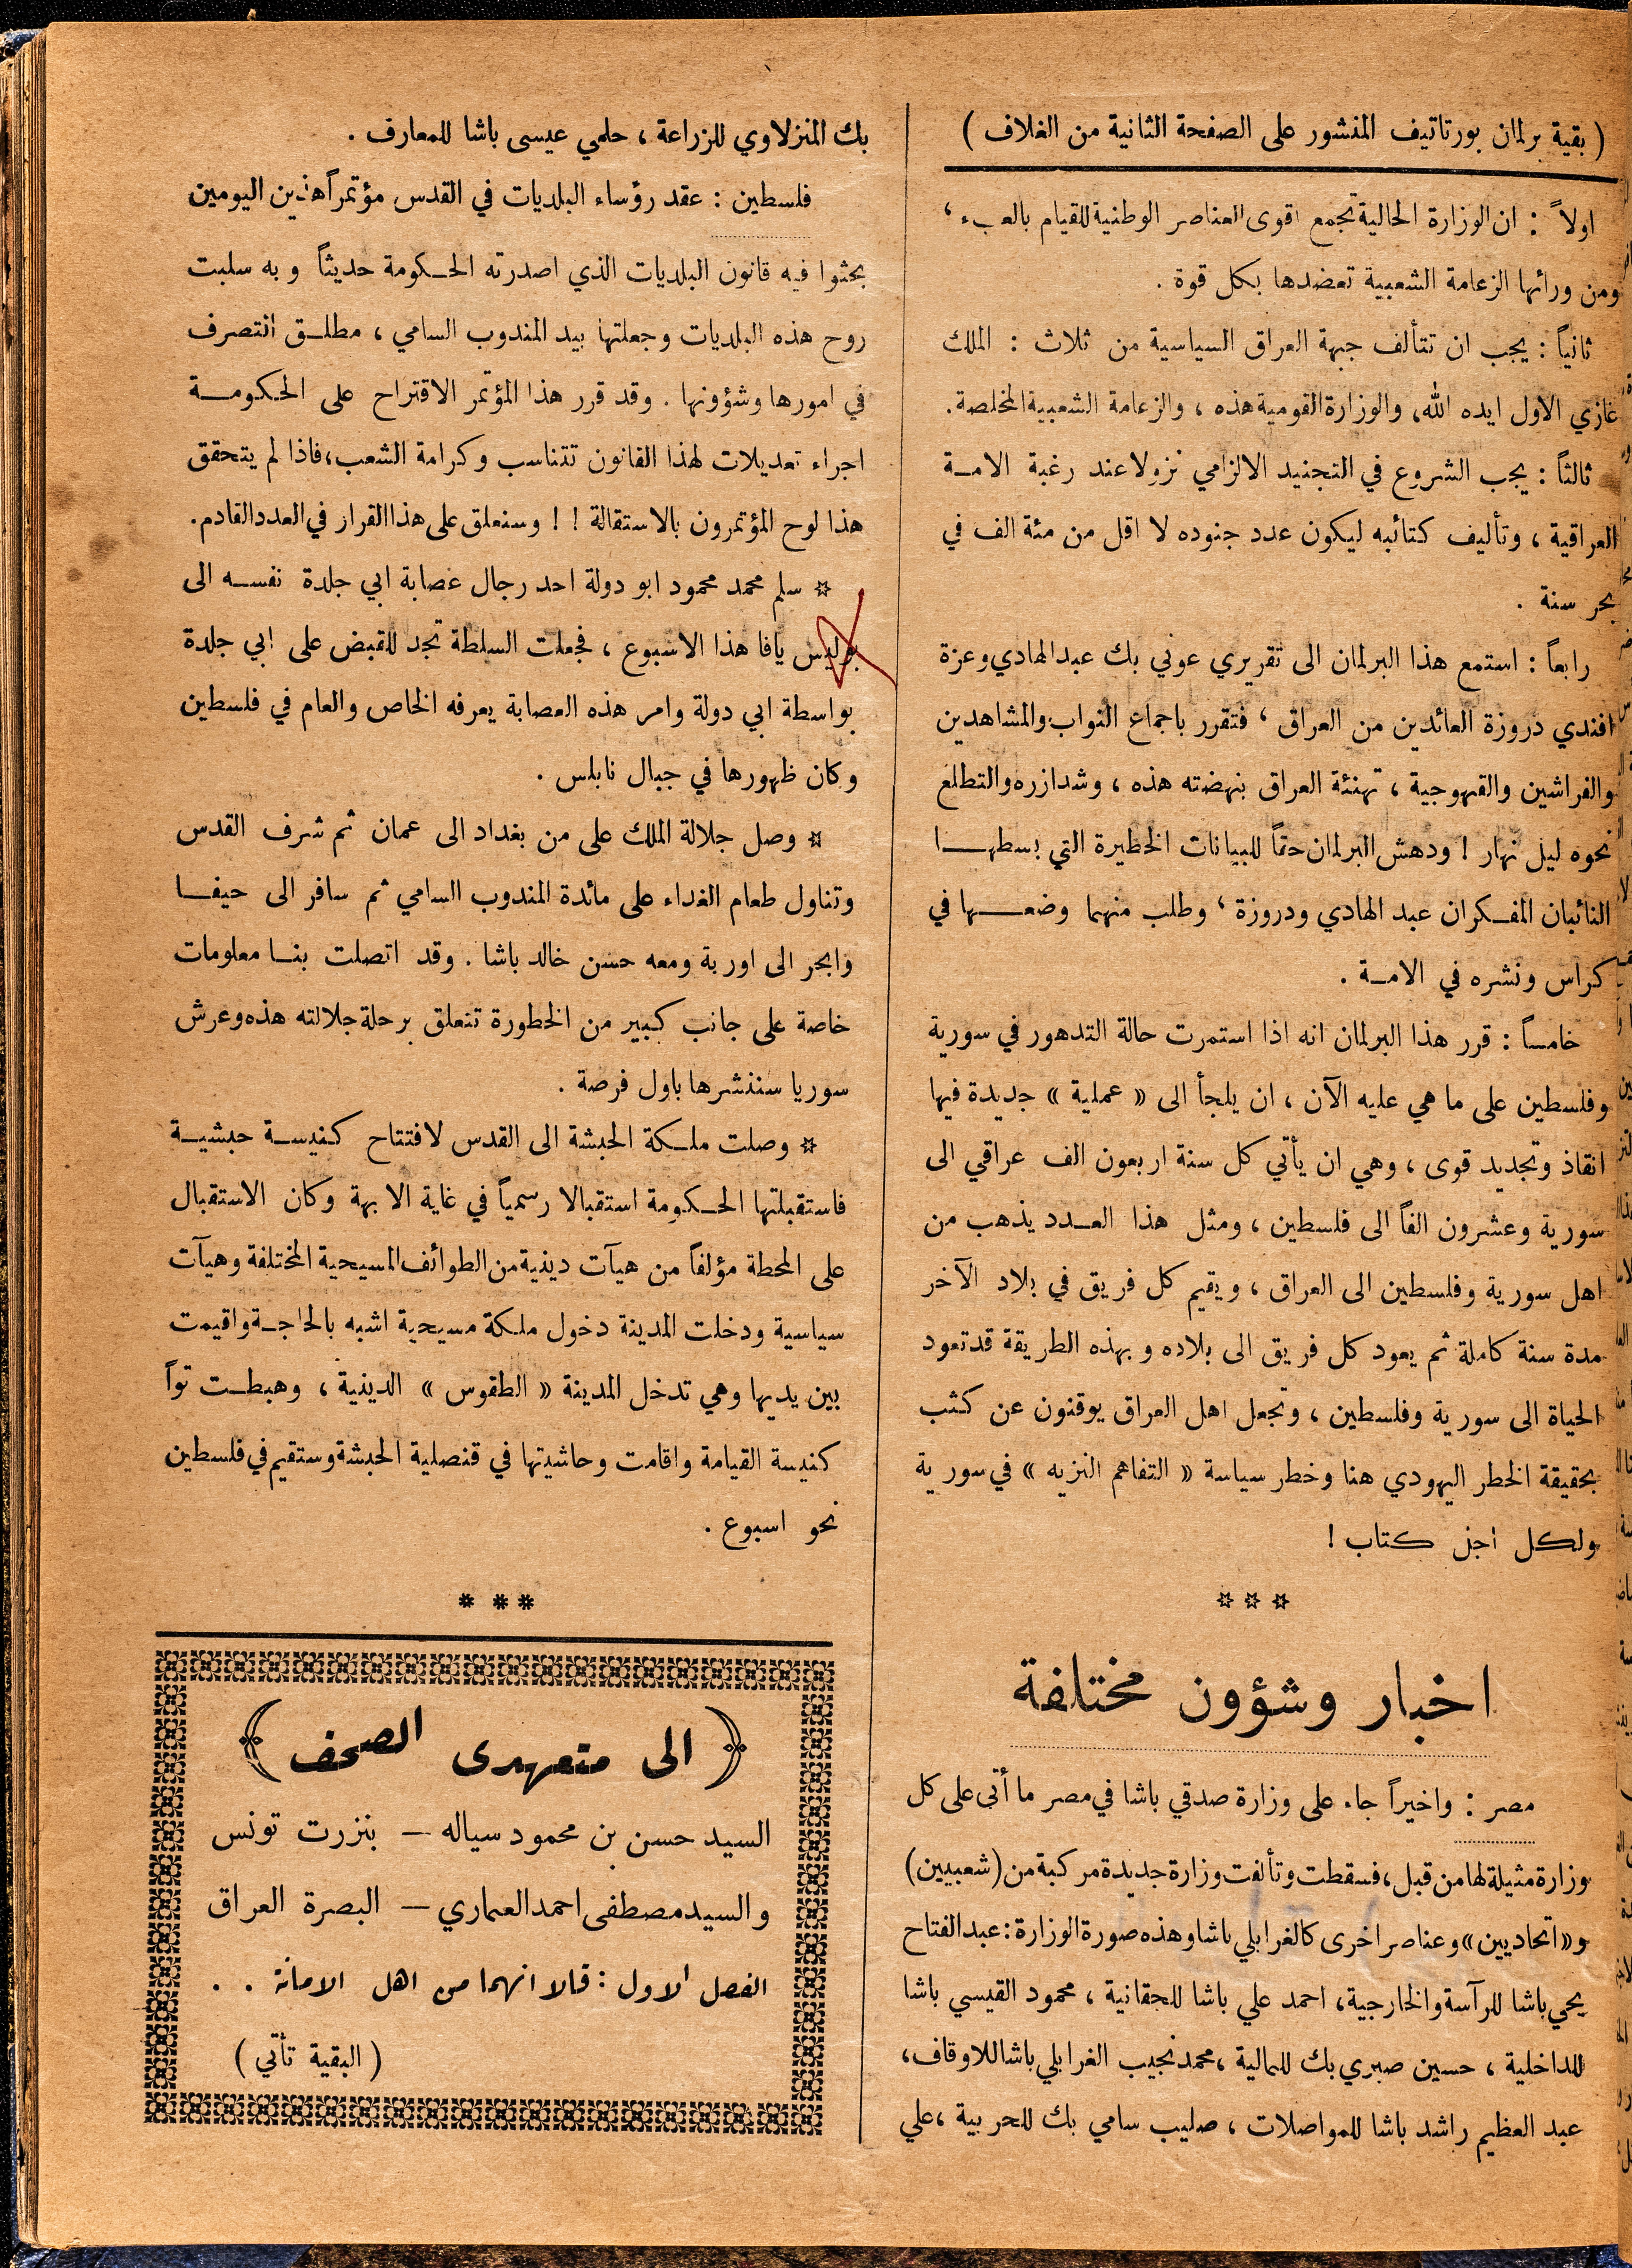 ( بقية برلمان بورتاتيف المنشور على الصفحة الثانية من الغلاف )
اولاً : ان الوزارة الحالية تجمع اقوى العناصر الوطنية للقيام بالعبء ،
ومن ورائها الزعامة الشعبية تعضدها بكل قوة .
ثانياً : يجب ان تتألف جبهة العراق السياسية من ثلاث : الملك
غازي الاول ايده الله، والوزارة القومية هذه ، والزعامة الشعبية المخلصة.
ثالثاً : يجب الشروع في التجنيد الالزامي نزولا عند رغبة الامة
العراقية ، وتأليف كتائبه ليكون عدد جنوده لا اقل من مئة الف في
بحر سنة .
رابعاً : استمع هذا البرلمان الى تقريري عوني بك عبد الهادي وعزة
افندي دروزة العائدين من العراق ، فتقرر باجماع النواب والمشاهدين
والفراشين والقهوجية ، تهنئة العراق بنهضته هذه ، وشد ازره والتطلع
نحوه ليل نهار ! ودهش البرلمان حقاً للبيانات الخطيرة التي بسطها
النائبان المفكران عبد الهادي ودروزة ، وطلب منهما وضعها في
كراس ونشره في الامة .
خامساً : قرر هذا البرلمان انه اذا استمرت حالة التدهور في سورية
وفلسطين على ما هي عليه الآن ، ان يلجأ الى « عملية » جديدة فيها
انقاذ وتجديد قوى ، وهي ان يأتي كل سنة اربعون الف عراقي الى
سورية وعشرون الفاً الى فلسطين ، ومثل هذا العدد يذهب من
اهل سورية وفلسطين الى العراق ، ويقيم كل فريق في بلاد الآخر
مدة سنة كاملة ثم يعود كل فريق الى بلاده وبهذه الطريقة قد تعود
الحياة الى سورية وفلسطين ، وتجعل اهل العراق يوقنون عن كثب
بحقيقة الخطر اليهودي هنا وخطر سياسة « التفاهم النزيه » في سورية
ولكل اجل كتاب !
☆ ☆ ☆
اخبار وشؤون مختلفة
مصر : واخيراً جاء على وزارة صدقي باشا في مصر ما أتى على كل
وزارة مثيلة لها من قبل، فسقطت وتألفت وزارة جديدة مركبة من (شعبيين)
و«اتحاديين» وعناصر اخرى كالغرابلي باشا وهذه صورة الوزارة: عبد الفتاح
يحي باشا للرآسة والخارجية، احمد علي باشا للحقانية ، محمود القيسي باشا
للداخلية ، حسين صبري بك للمالية ، محمد نجيب الغرابلي باشا للاوقاف،
عبد العظيم راشد باشا للمواصلات ، صليب سامي بك للحربية ، علي
بك المنزلاوي للزراعة ، حلمي عيسى باشا للمعارف .
فلسطين : عقد رؤساء البلديات في القدس مؤتمراً هذين اليومين
بحثوا فيه قانون البلديات الذي اصدرته الحكومة حديثاً وبه سلبت
روح هذه البلديات وجعلتها بيد المندوب السامي ، مطلق التصرف
في امورها وشؤونها . وقد قرر هذا المؤتمر الاقتراح على الحكومة
اجراء تعديلات لهذا القانون تتناسب وكرامة الشعب، فاذا لم يتحقق
هذا لوح المؤتمرون بالاستقالة ! ! وسنعلق على هذا القرار في العدد القادم.
☆ سلم محمد محمود ابو دولة احد رجال عصابة ابي جلدة نفسه الى
بوليس يافا هذا الاسبوع ، فجعلت السلطة تجد للقبض على ابي جلدة
بواسطة ابي دولة وامر هذه العصابة يعرفه الخاص والعام في فلسطين
وكان ظهورها في جبال نابلس .
☆ وصل جلالة الملك علي من بغداد الى عمان ثم شرف القدس
وتناول طعام الغداء على مائدة المندوب السامي ثم سافر الى حيفا
وابحر الى اوربة ومعه حسن خالد باشا . وقد اتصلت بنا معلومات
خاصة على جانب كبير من الخطورة تتعلق برحلة جلالته هذه وعرش
سوريا سننشرها باول فرصة .
☆ وصلت ملكة الحبشة الى القدس لافتتاح كنيسة حبشية
فاستقبلتها الحكومة استقبالا رسمياً في غاية الابهة وكان الاستقبال
على المحطة مؤلفاً من هيآت دينية من الطوائف المسيحية المختلفة وهيآت
سياسية ودخلت المدينة دخول ملكة مسيحية اشبه بالحاجة واقيمت
بين يديها وهي تدخل المدينة « الطقوس » الدينية ، وهبطت تواً
كنيسة القيامة واقامت وحاشيتها في قنصلية الحبشة وستقيم في فلسطين
نحو اسبوع .
* * *
﴿ الى متعهدى الصحف ﴾
السيد حسن بن محمود سياله — بنزرت تونس
والسيد مصطفى احمد العماري — البصرة العراق
الفصل الاول : قالا انهما من اهل الامانة . .
( البقية تأتي )